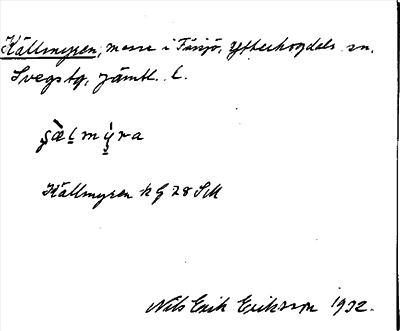 Källmyren, mosse i Fåsjö, Ytterhogdals sn.
Svegs tg, Jämtl. l.
Källmyren k G 28 SM
Nils Erik Eriksson 1932.